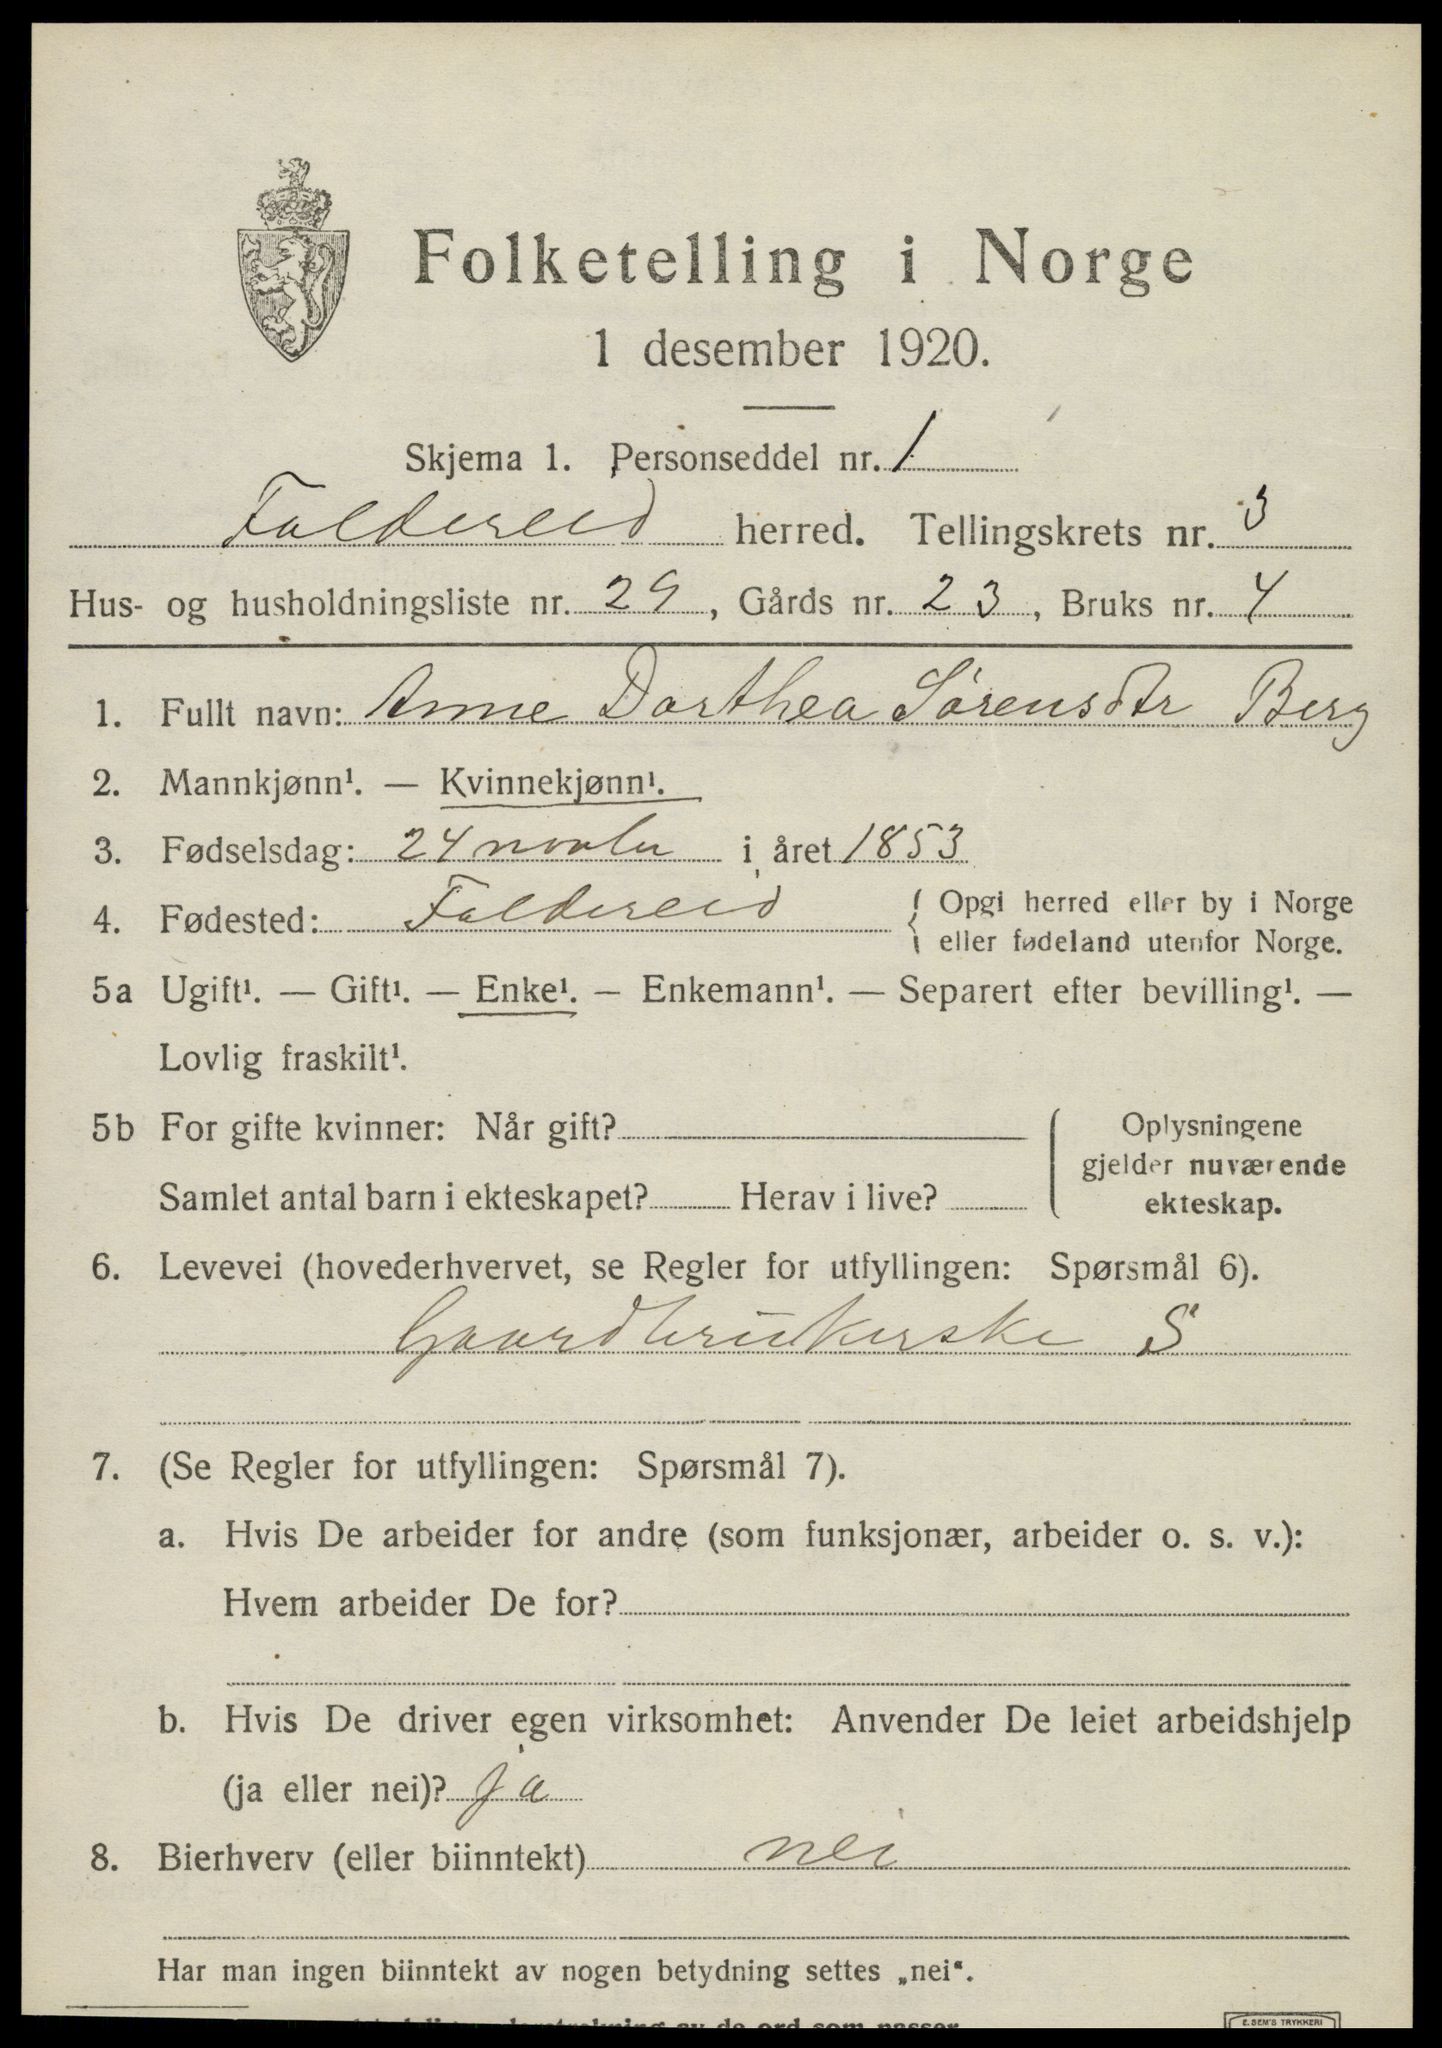 Folketelling i Norge
1 desember 1920.
Skjema 1. Personseddel nr. 1
Foldereid herred. Tellingskrets nr. 3
Hus- og husholdningsliste nr. 29, Gårds nr. 23, Bruks nr. 4
1. Fullt navn: Anne Dorthea Sørensdtr Berg
2. Mannkjønn¹. — Kvinnekjønn¹.
3. Fødselsdag: 24 novbr i året 1853
4. Fødested: Foldereid { Opgi herred eller by i Norge
eller fødeland utenfor Norge.
5a Ugift¹. — Gift¹. — Enke¹. — Enkemann¹. — Separert efter bevilling¹. —
Lovlig fraskilt¹.
5b For gifte kvinner: Når gift?
Samlet antal barn i ekteskapet? Herav i live?
Oplysningene
gjelder nuværende
ekteskap.
6. Levevei (hovederhvervet, se Regler for utfyllingen: Spørsmål 6).
Gaardbrukerske S
7. (Se Regler for utfyllingen: Spørsmål 7).
a. Hvis De arbeider for andre (som funksjonær, arbeider o. s. v.):
Hvem arbeider De for?
b. Hvis De driver egen virksomhet: Anvender De leiet arbeidshjelp
(ja eller nei)? ja
8. Bierhverv (eller biinntekt) nei
Har man ingen biinntekt av nogen betydning settes „nei“.
av de ord som passer
E. SEM'S TRYKKERI